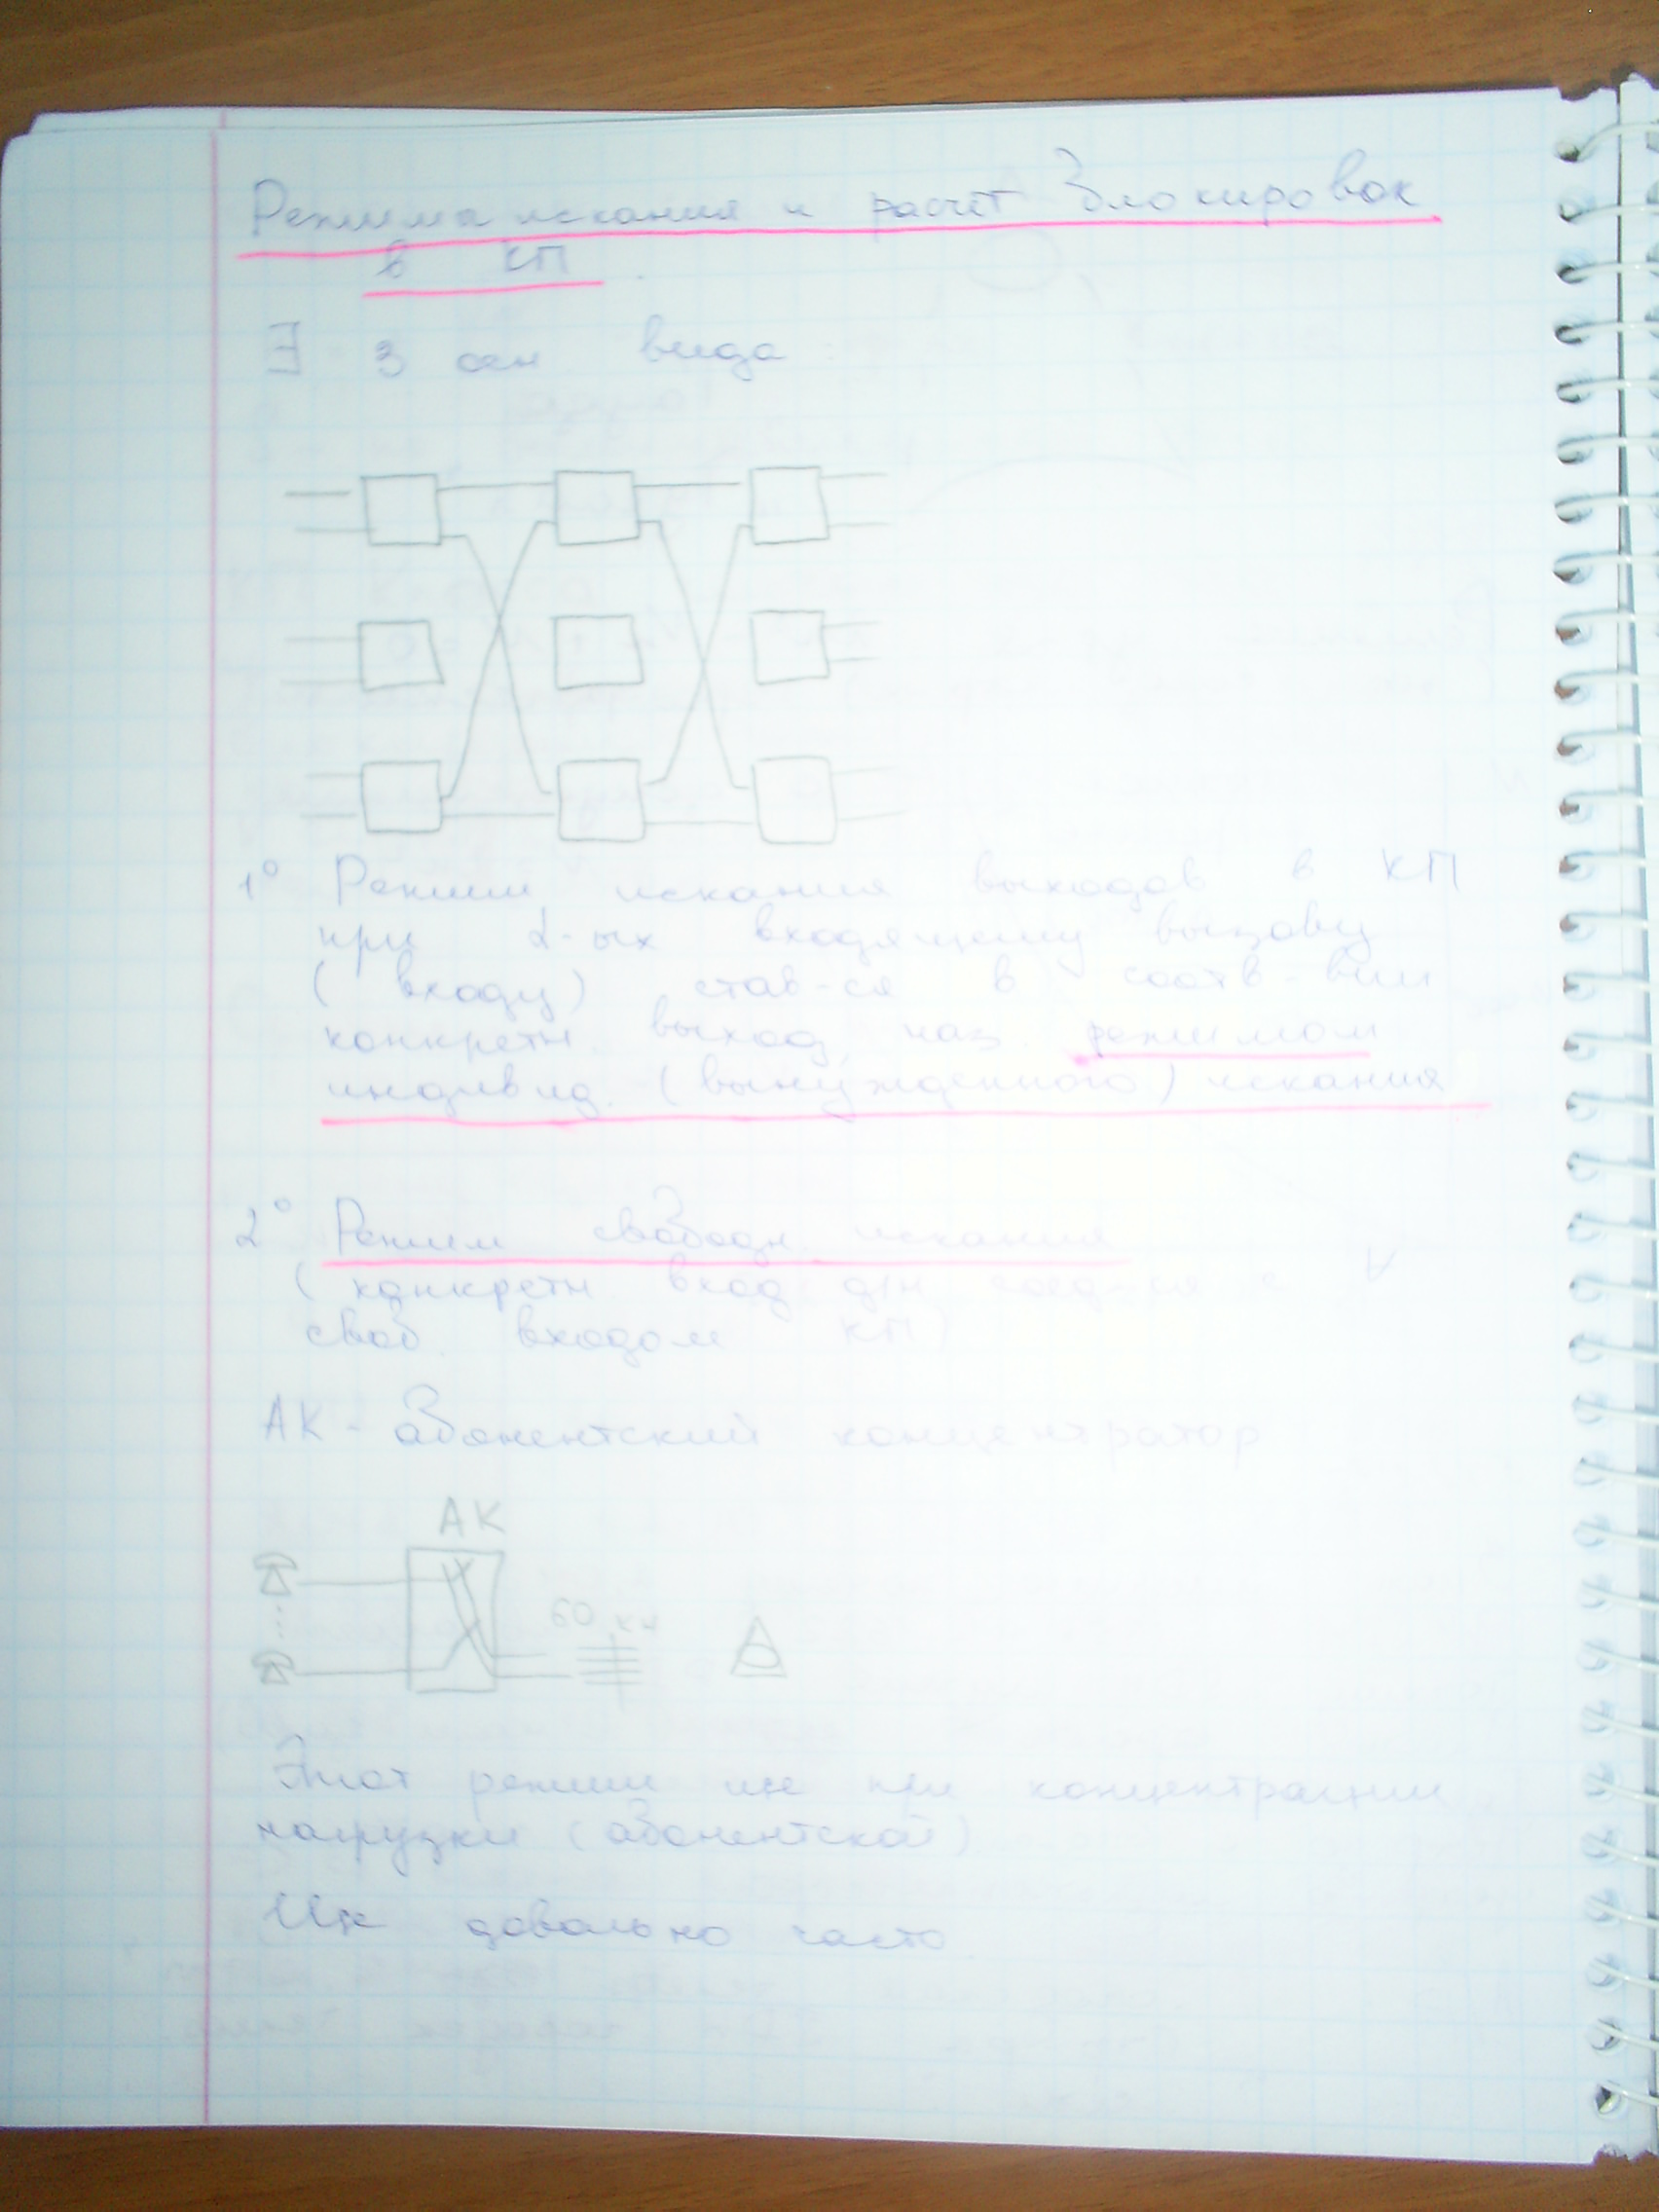 Режимы искания и расчёт блокировок
в КП
∃ 3 осн вида
1° Режим искания выходов в КП
при входящему вызову
(входу) став-ся в соотв-вии
конкретн. выход, наз. режимом
индивид. (вынужденного) искания
2° Режим свободн. искания
(конкретн вход д/н соед-ся с ∀
своб. входом КП)
АК - абонентский концентратор
АК
60 кн
Этот режим исе при концентрации
нагрузки (абонентской)
Исе довольно часто